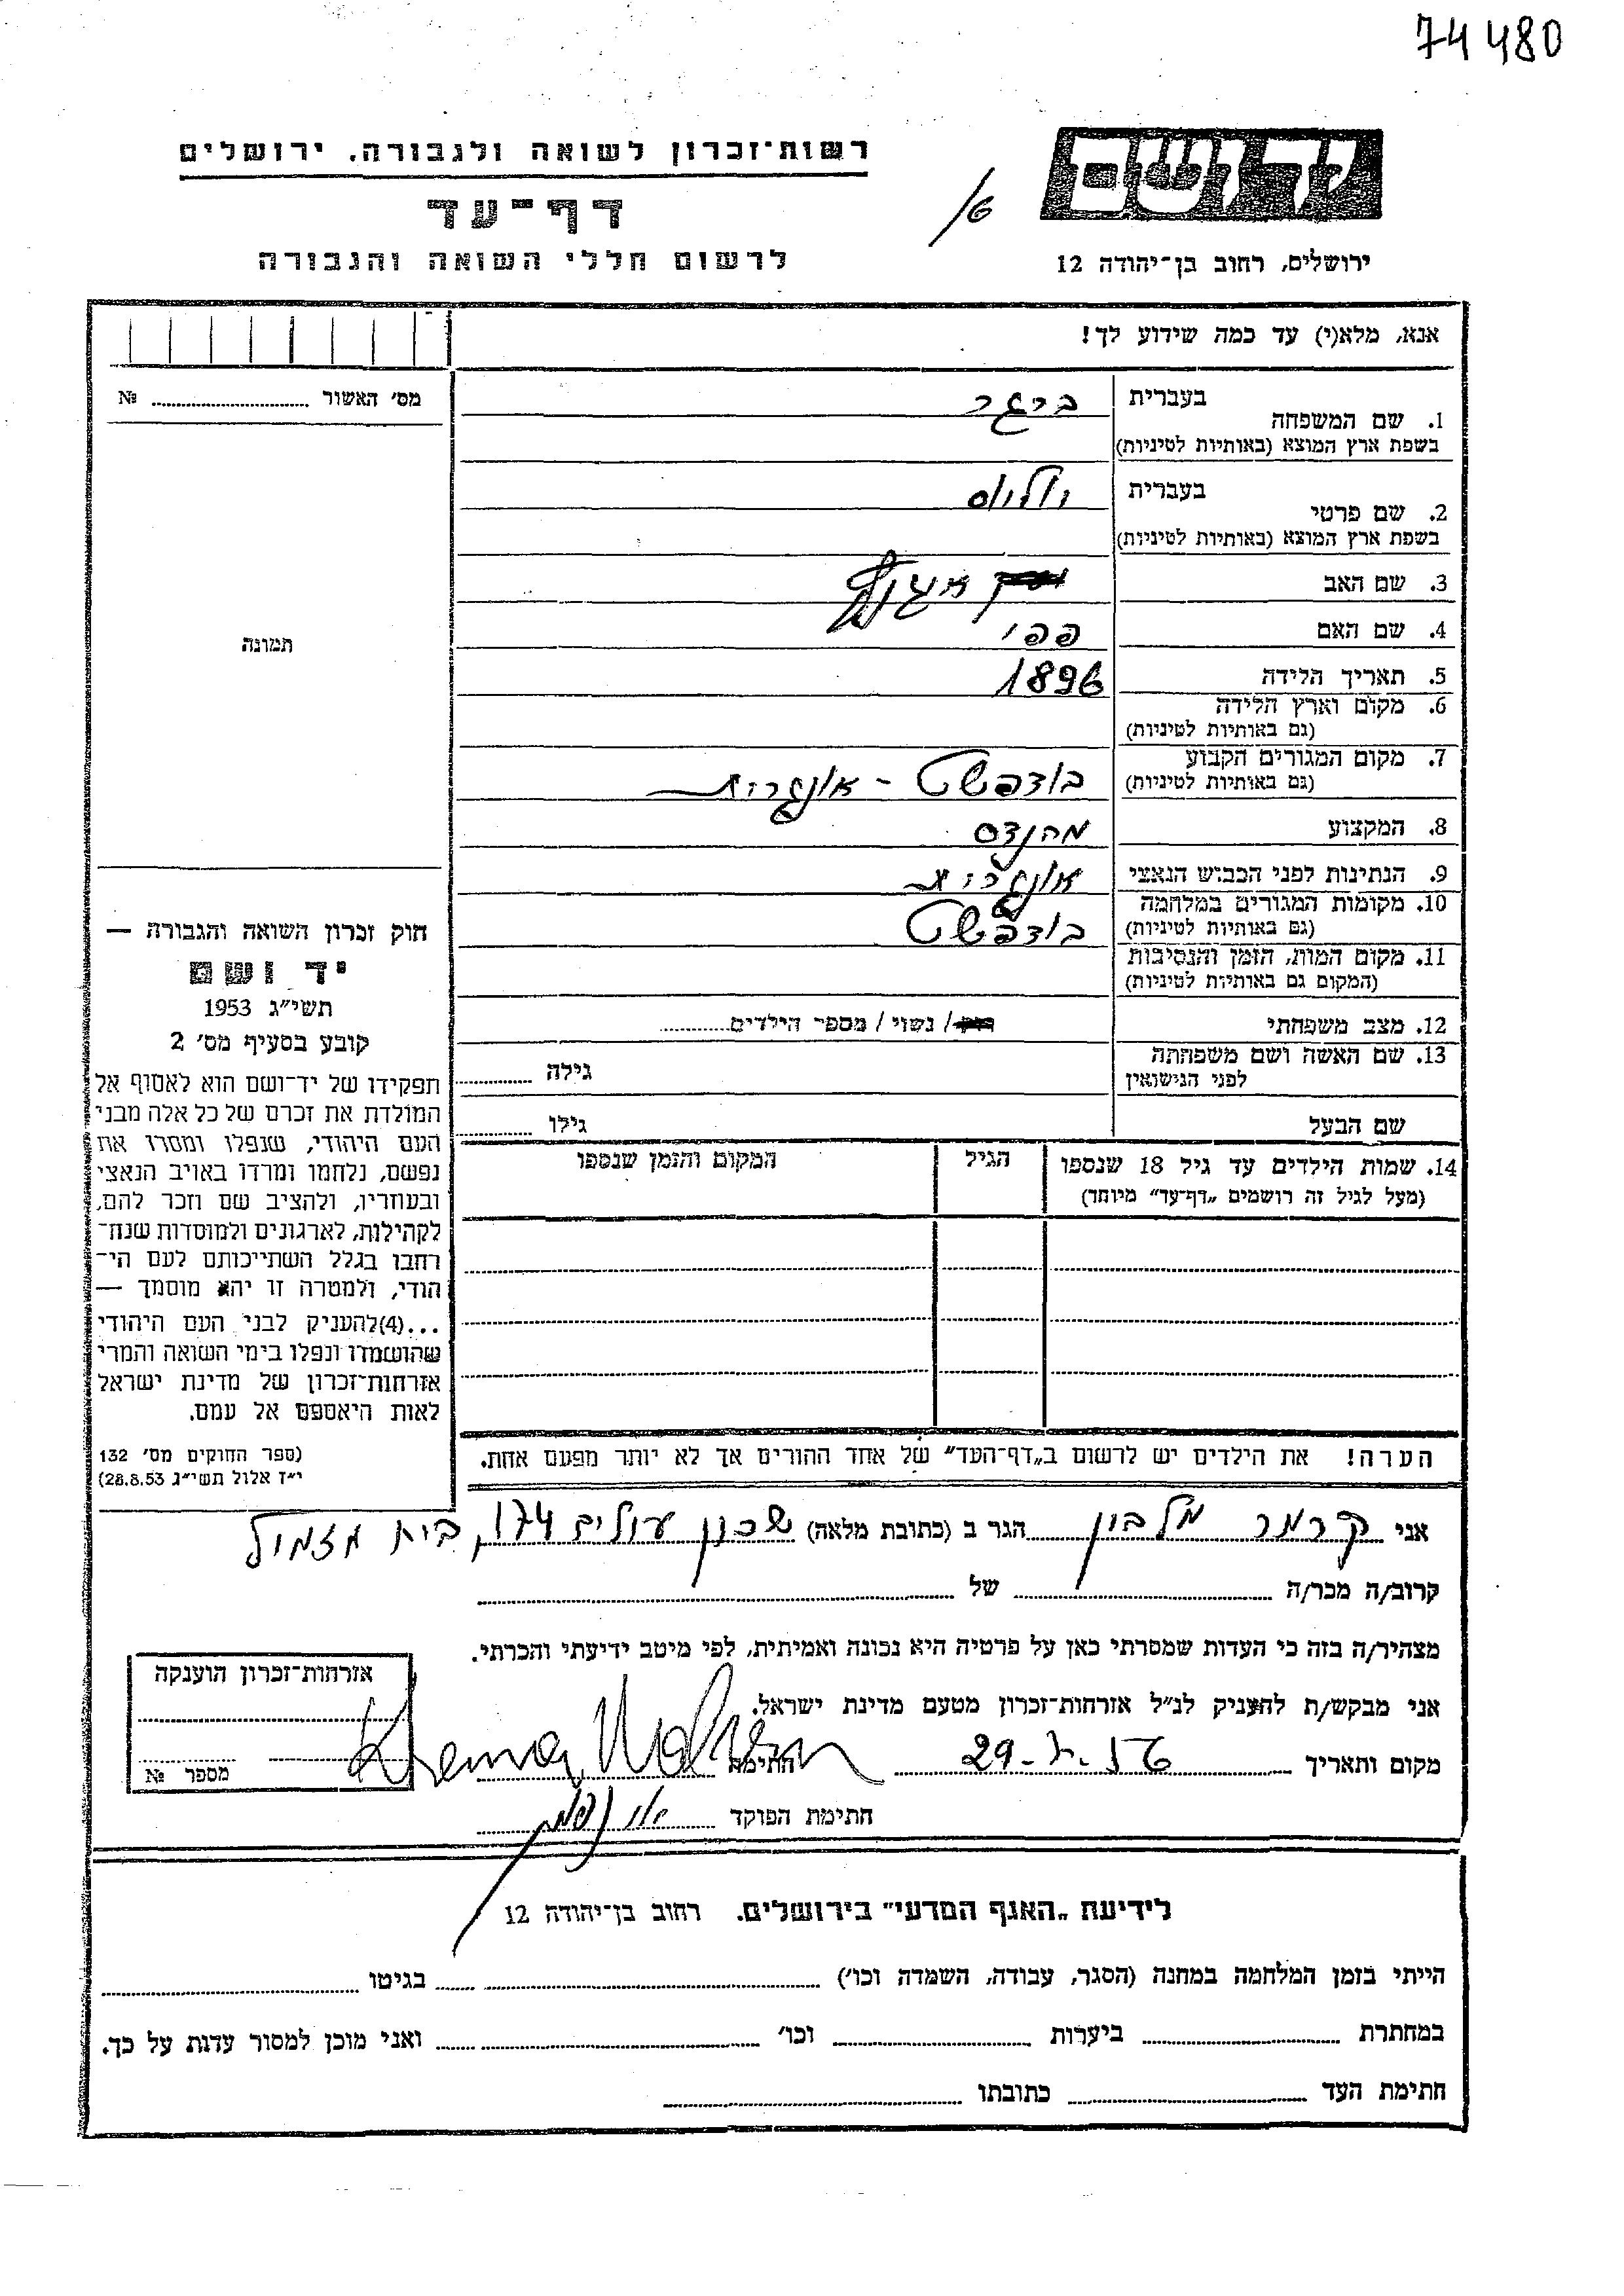 74480
רשות־זכרון לשואה ולגבורה, ירושלים
דף־עד
לרשום חללי השואה והגבורה
יד ושם
ירושלים, רחוב בן־יהודה 12
אנא, מלא(י) עד כמה שידוע לך!
מס׳ האשור № 
1. שם המשפחה
בעברית ביגר
בשפת ארץ המוצא (באותיות לטיניות)
2. שם פרטי
בעברית
בשפת ארץ המוצא (באותיות לטיניות)
3. שם האב
4. שם האם פפי
5. תאריך הלידה 1896
6. מקום וארץ הלידה
(גם באותיות לטיניות)
7. מקום המגורים הקבוע בודפשט - אונגריה
(גם באותיות לטיניות)
8. המקצוע מהנדס
9. הנתינות לפני הכבוש הנאצי אונגרית
10. מקומות המגורים במלחמה בודפשט
(גם באותיות לטיניות)
11. מקום המות, הזמן והנסיבות
(המקום גם באותיות לטיניות)
12. מצב משפחתי רוק / נשוי / מספר הילדים
13. שם האשה ושם משפחתה גילה
לפני הנישואין
שם הבעל גילו
14. שמות הילדים עד גיל 18 שנספו הגיל המקום והזמן שנספו
(מעל לגיל זה רושמים „דף־עד״ מיוחד)
הערה! את הילדים יש לרשום ב„דף־העד״ של אחד ההורים אך לא יותר מפעם אחת.
תמונה
חוק זכרון השואה והגבורה —
יד ושם
תשי״ג 1953
קובע בסעיף מס׳ 2
תפקידו של יד־ושם הוא לאסוף אל
המולדת את זכרם של כל אלה מבני
העם היהודי, שנפלו ומסרו את
נפשם, נלחמו ומרדו באויב הנאצי
ובעוזריו, ולהציב שם וזכר להם,
לקהילות, לארגונים ולמוסדות שנח־
רבו בגלל השתייכותם לעם הי־
הודי, ולמטרה זו יהא מוסמך —
...(4)להעניק לבני העם היהודי
שהושמדו ונפלו בימי השואה והמרי
אזרחות־זכרון של מדינת ישראל
לאות היאספם אל עמם.
(ספר החוקים מס׳ 132
י״ז אלול תשי״ג 28.8.53)
אני קרמר מלבין הגר ב (כתובת מלאה) שכון עולים 174, בית מזמיל
קרוב/ה מכר/ה של
מצהיר/ה בזה כי העדות שמסרתי כאן על פרטיה היא נכונה ואמיתית, לפי מיטב ידיעתי והכרתי.
אני מבקש/ת להעניק לנ״ל אזרחות־זכרון מטעם מדינת ישראל.
מקום ותאריך חתימה
חתימת הפוקד
אזרחות־זכרון הוענקה
מספר №
לידיעת „האגף המדעי״ בירושלים. רחוב בן־יהודה 12
הייתי בזמן המלחמה במחנה (הסגר, עבודה, השמדה וכו׳) בגיטו
במחתרת ביערות וכו׳ ואני מוכן למסור עדות על כך.
חתימת העד כתובתו